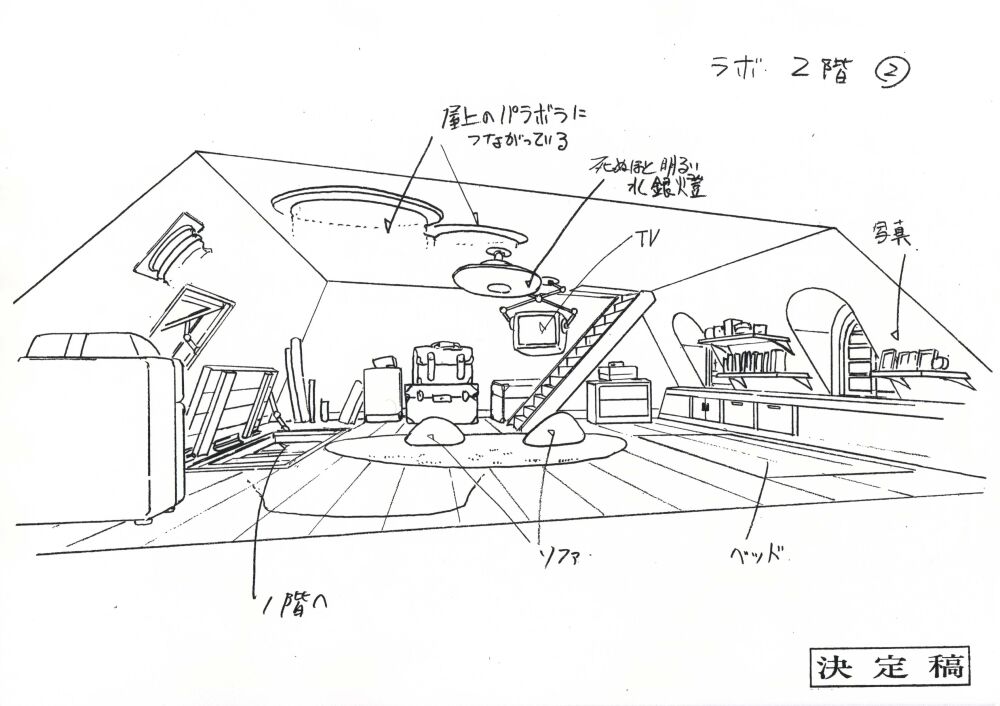 ラボ 2階 ②
屋上のパラボラに
つながっている
死ぬほど明るい
水銀燈
TV
写真
ソファ
ベッド
1階へ
決定稿